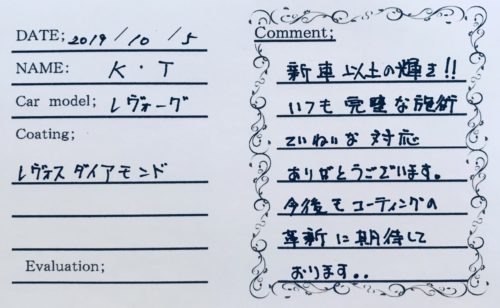 DATE; 2019 / 10 / 5
NAME; K・T
Car model; レヴォーグ
Coating;
レヴォス ダイアモンド
Evaluation;
Comment;
新車以上の輝き!!
いつも完璧な施術
ていねいな対応
ありがとうございます。
今後もコーティングの
革新に期待して
おります..